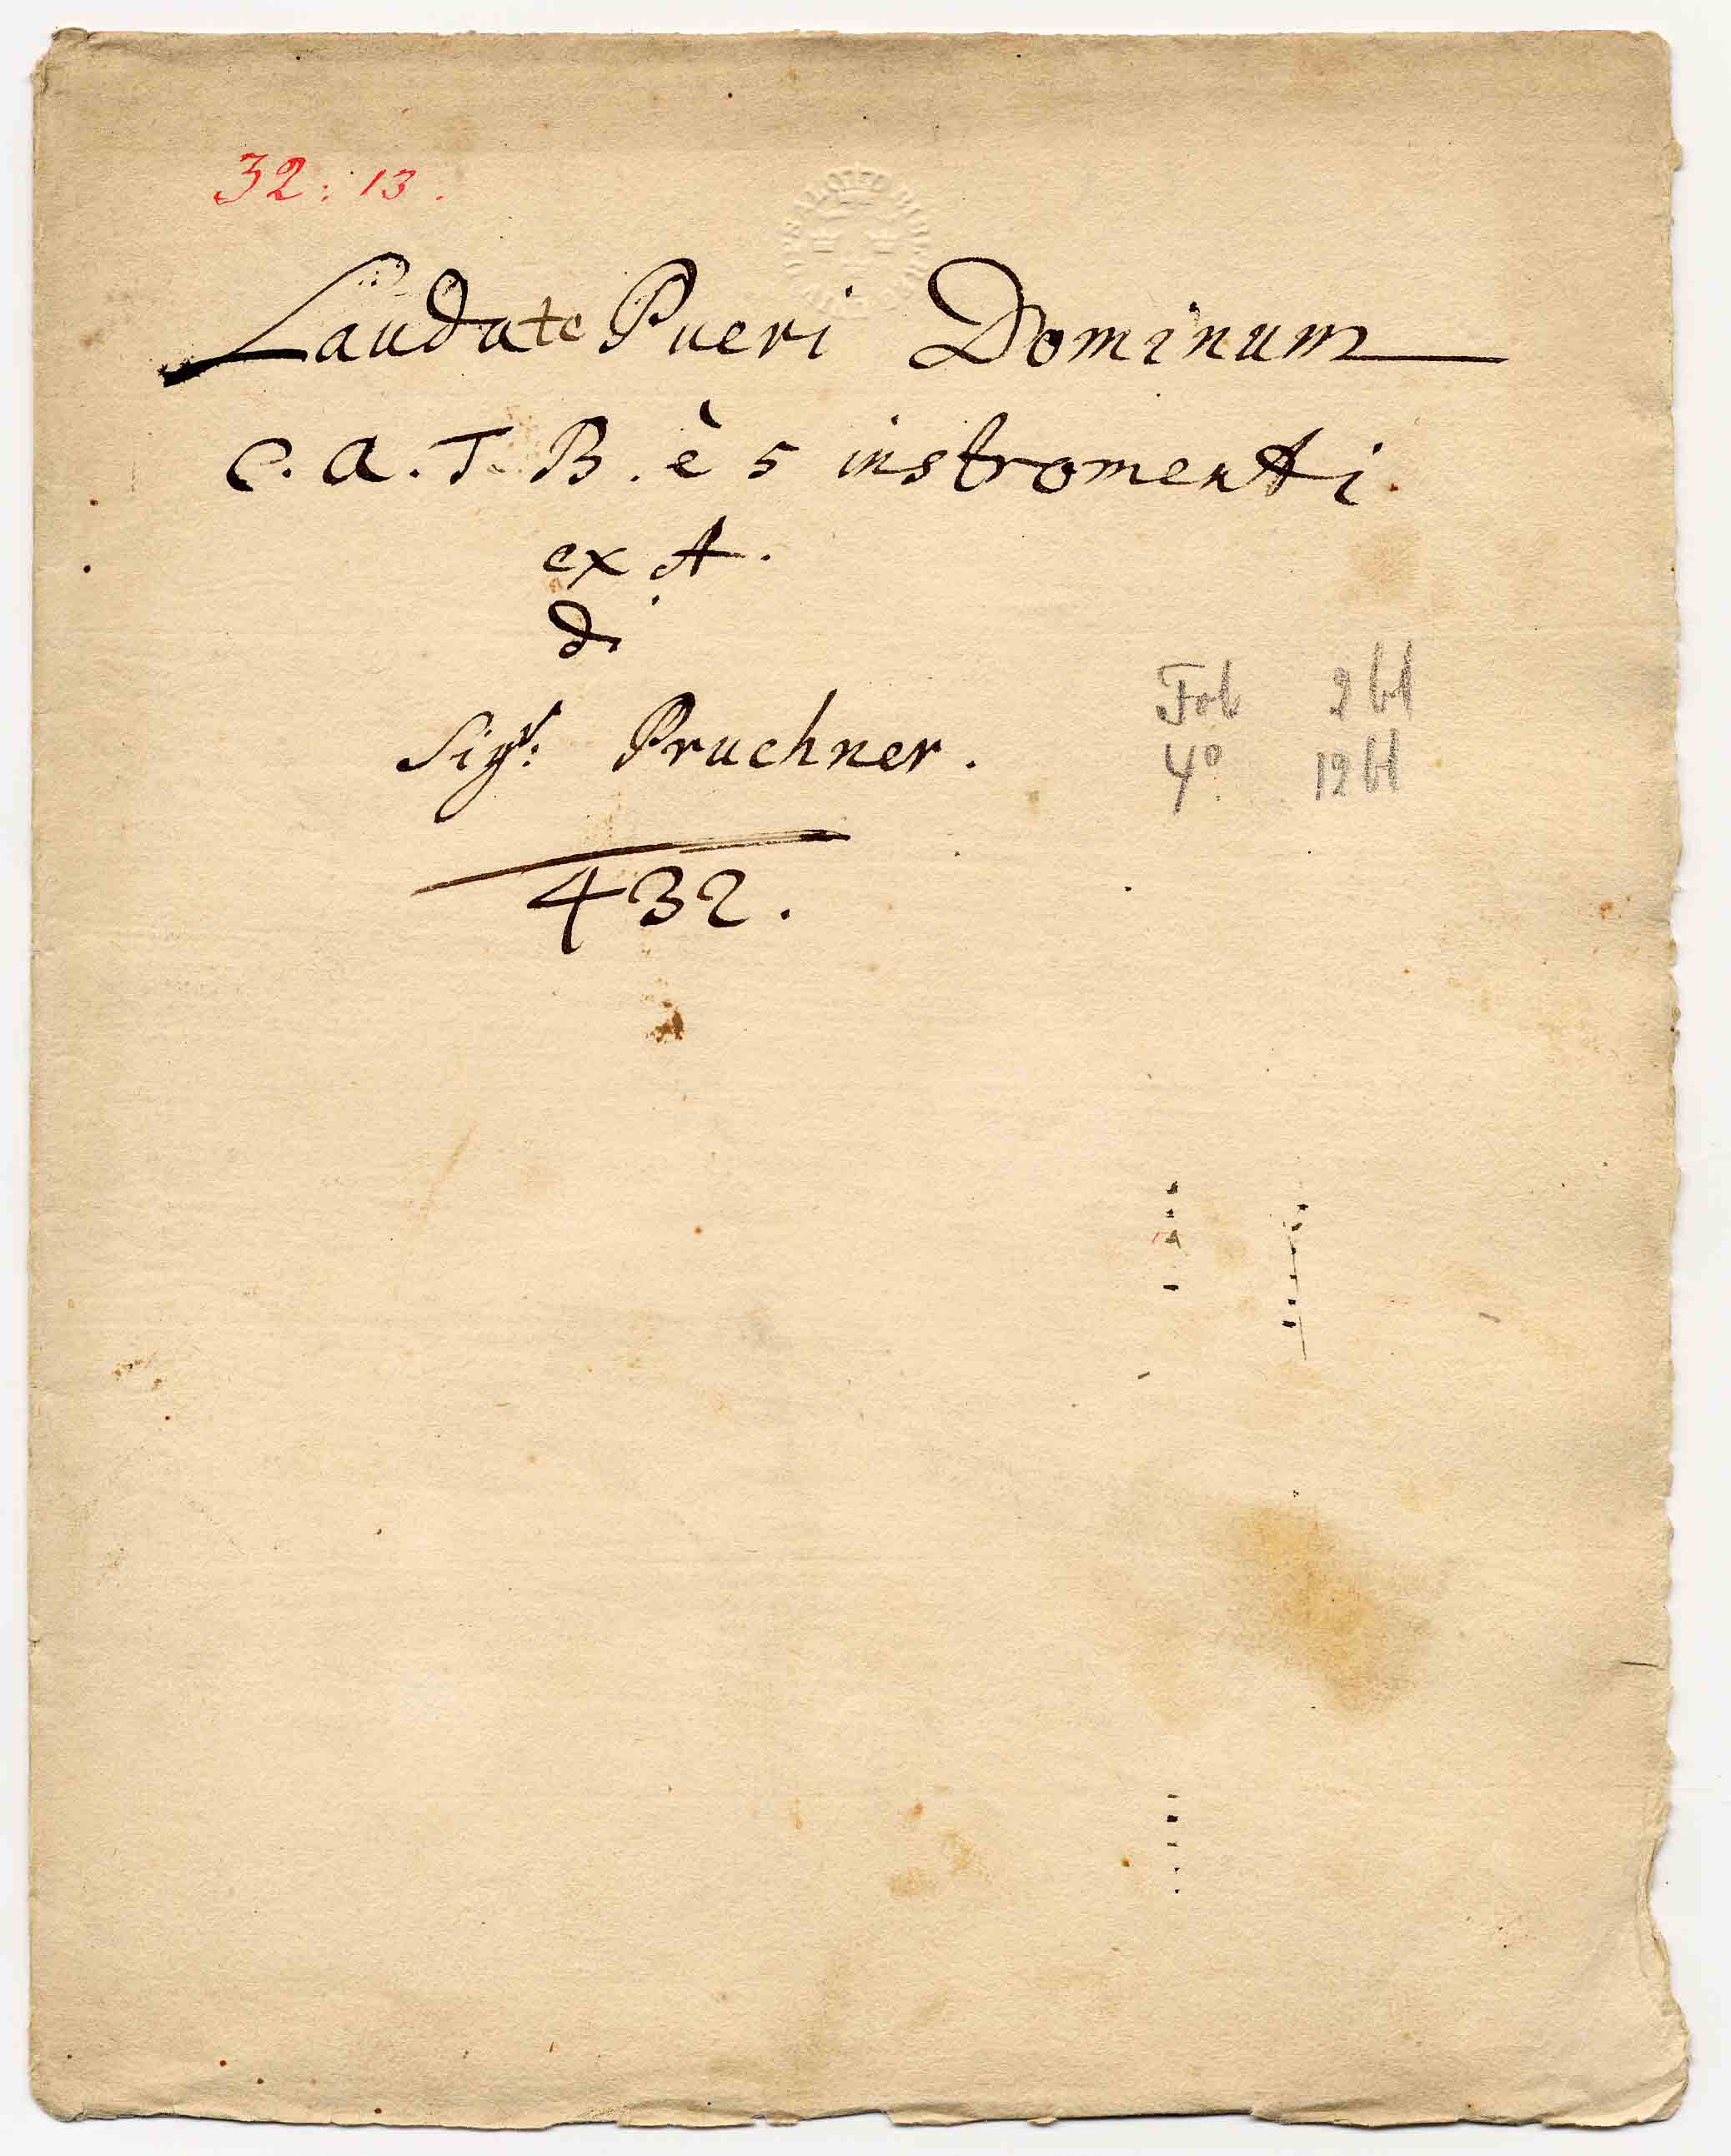 32:13.
Laudate Pueri Dominum
C. A. T. B. è 5 instromenti.
ex A.
di
Sigr: Pruchner.
Fol 2 bl
4o 12 bl
432.